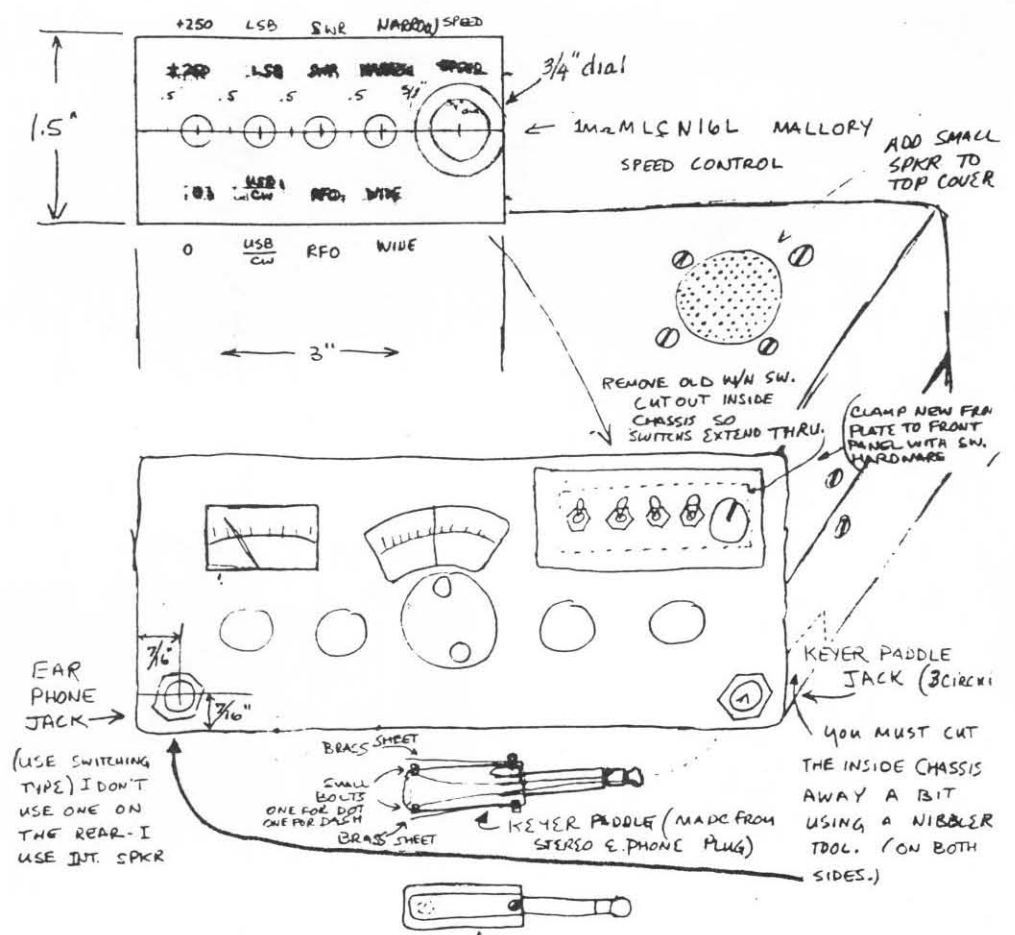 +250 LSB SWR NARROW SPEED
LSB SWR
.5 .5 .5 .5
3/4" dial
1.5"
MALLORY
SPEED CONTROL
ADD SMALL
SPKR TO
TOP COVER
USB
CW RFO WIDE
0 USB RFO WIDE
CW
3"
REMOVE OLD W/N SW.
CUT OUT INSIDE
CHASSIS SO
SWITCHS EXTEND THRU.
CLAMP NEW
PLATE TO FRONT
PANEL WITH SW.
HARDWARE
7/16"
7/16"
EAR
PHONE
JACK
(USE SWITCHING
TYPE) I DON'T
USE ONE ON
THE REAR-I
USE INT. SPKR
KEYER PADDLE
JACK (3
YOU MUST CUT
THE INSIDE CHASSIS
AWAY A BIT
USING A NIBBLER
TOOL. (ON BOTH
SIDES.)
BRASS SHEET
SMALL
BOLTS
ONE FOR DOT
ONE FOR DASH
BRASS SHEET
KEYER PADDLE (MADE FROM
STEREO E.PHONE PLUG)